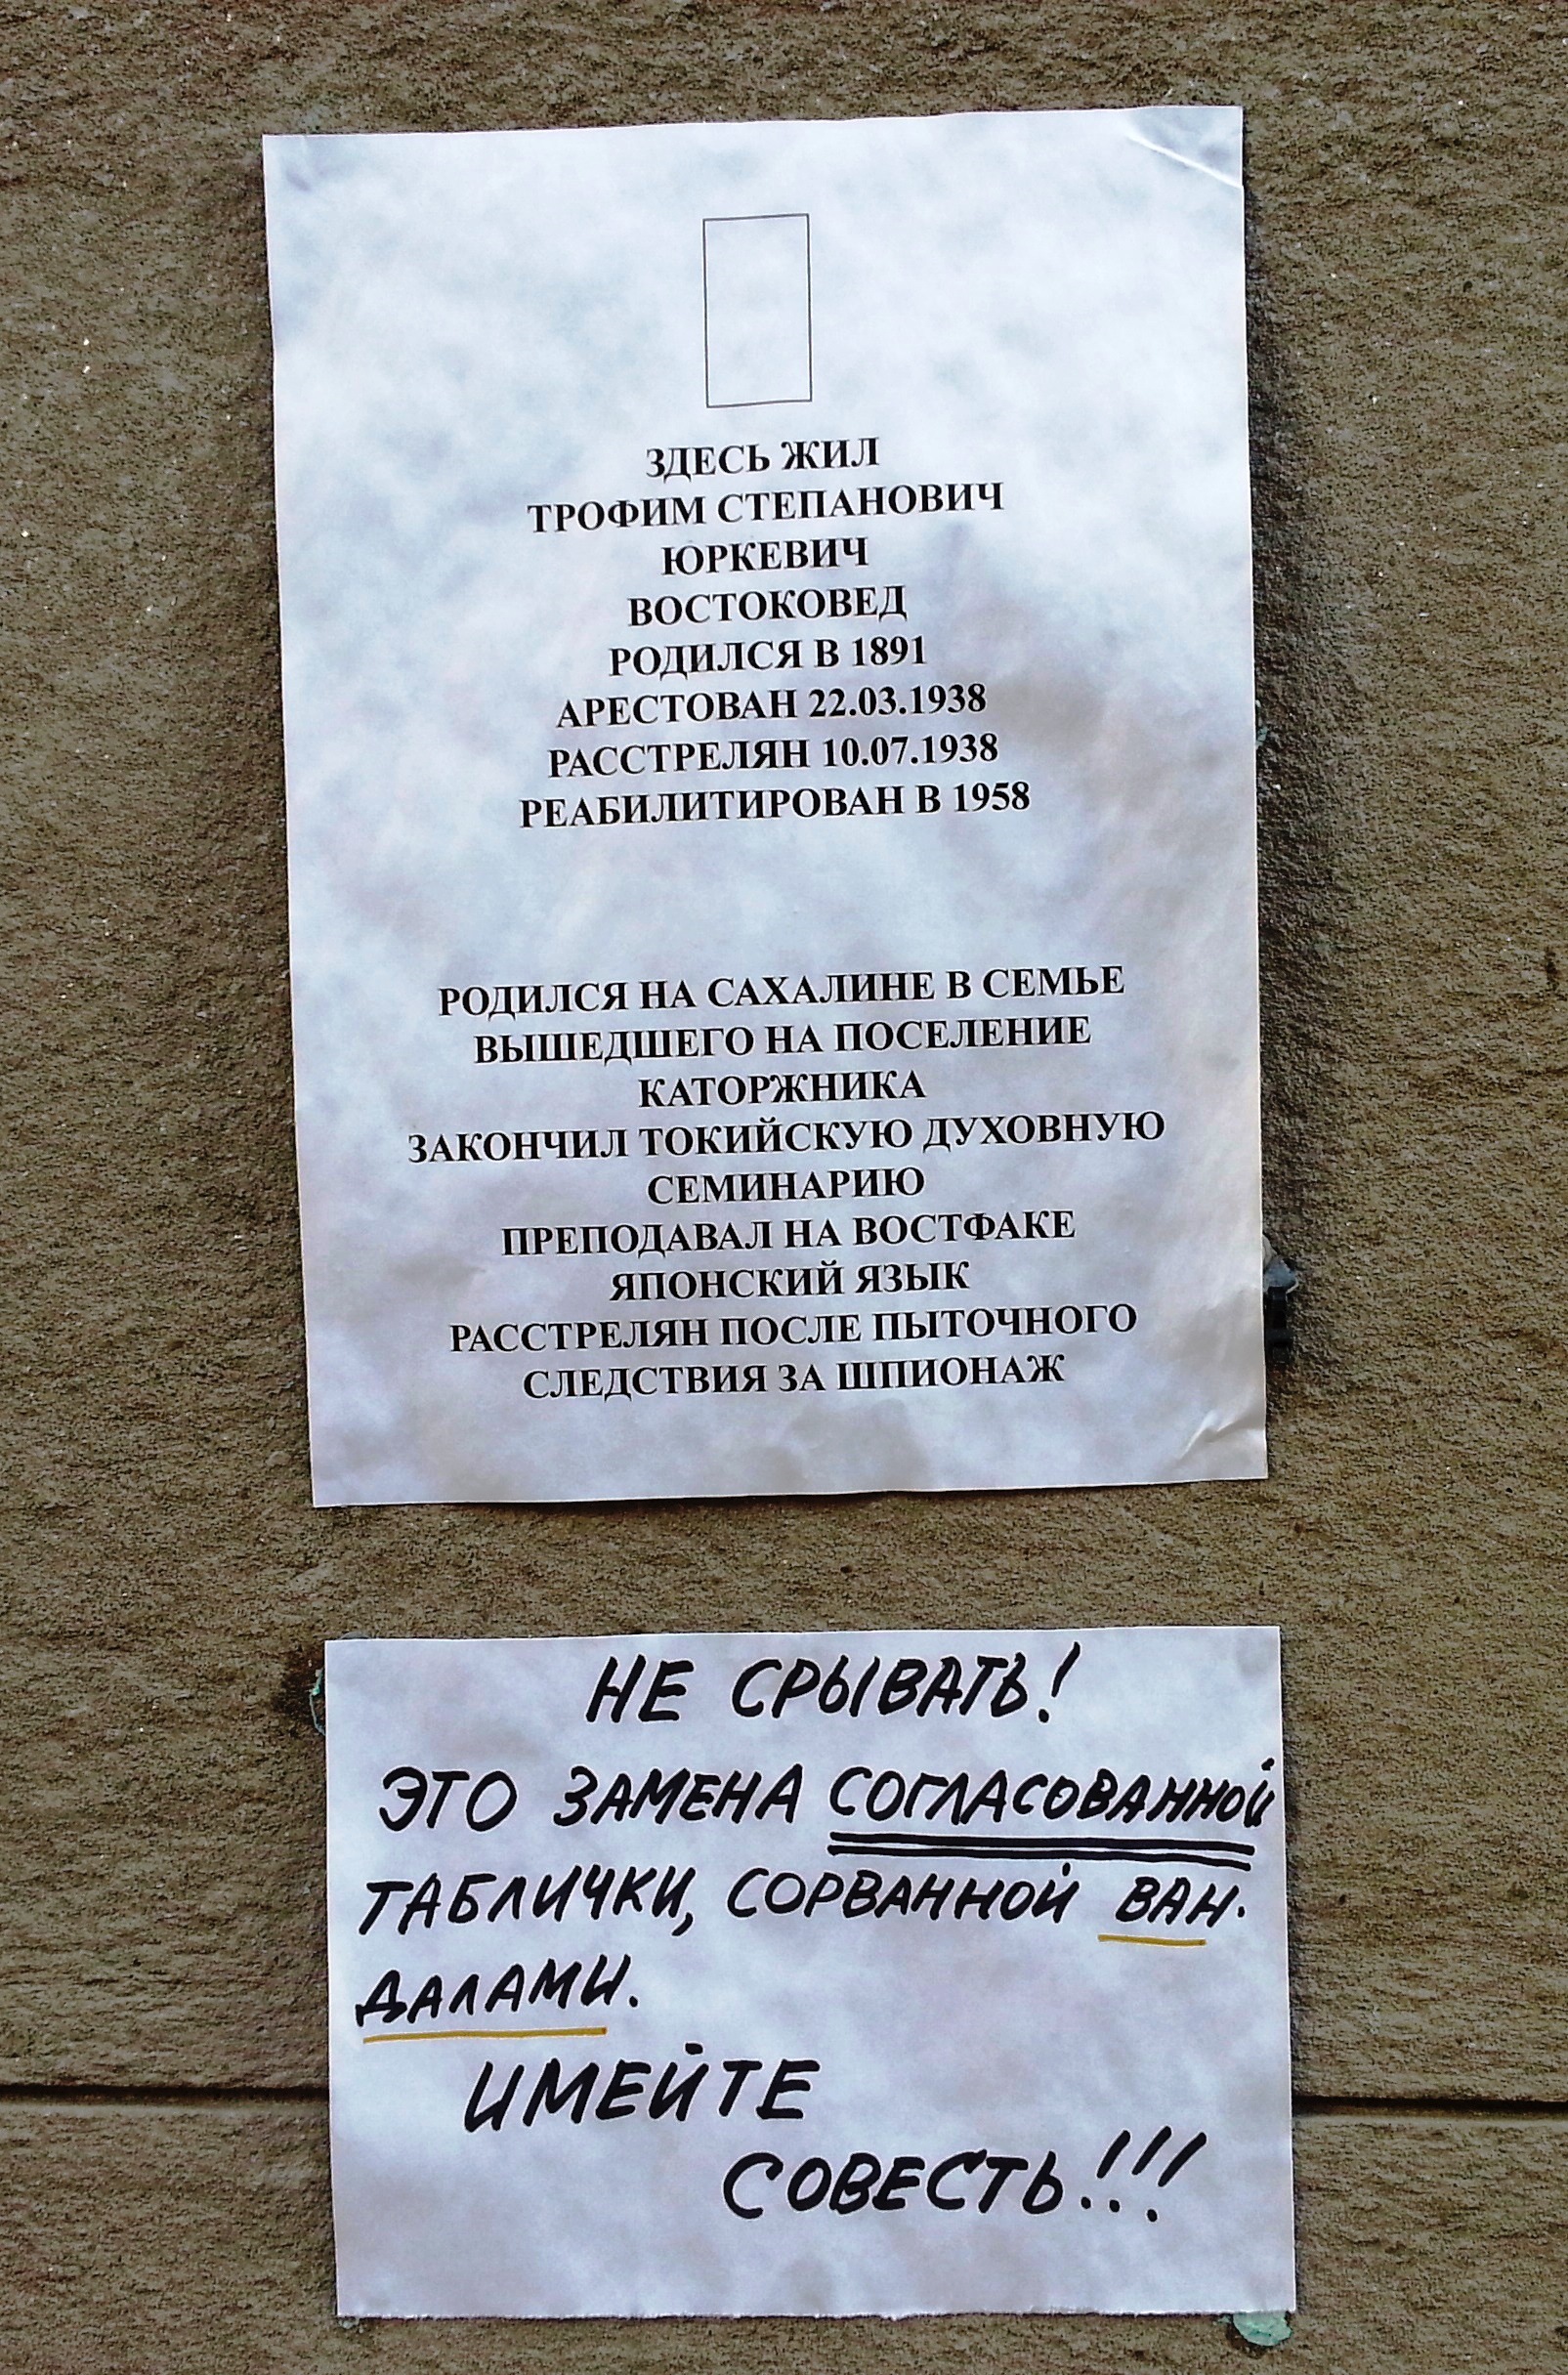 ЗДЕСЬ ЖИЛ
ТРОФИМ СТЕПАНОВИЧ
ЮРКЕВИЧ
ВОСТОКОВЕД
РОДИЛСЯ В 1891
АРЕСТОВАН 22.03.1938
РАССТРЕЛЯН 10.07.1938
РЕАБИЛИТИРОВАН В 1958
РОДИЛСЯ НА САХАЛИНЕ В СЕМЬЕ
ВЫШЕДШЕГО НА ПОСЕЛЕНИЕ
КАТОРЖНИКА
ЗАКОНЧИЛ ТОКИЙСКУЮ ДУХОВНУЮ
СЕМИНАРИЮ
ПРЕПОДАВАЛ НА ВОСТФАКЕ
ЯПОНСКИЙ ЯЗЫК
РАССТРЕЛЯН ПОСЛЕ ПЫТОЧНОГО
СЛЕДСТВИЯ ЗА ШПИОНАЖ
НЕ СРЫВАТЬ!
ЭТО ЗАМЕНА СОГЛАСОВАННОЙ
ТАБЛИЧКИ, СОРВАННОЙ ВАН-
ДАЛАМИ.
ИМЕЙТЕ
СОВЕСТЬ!!!